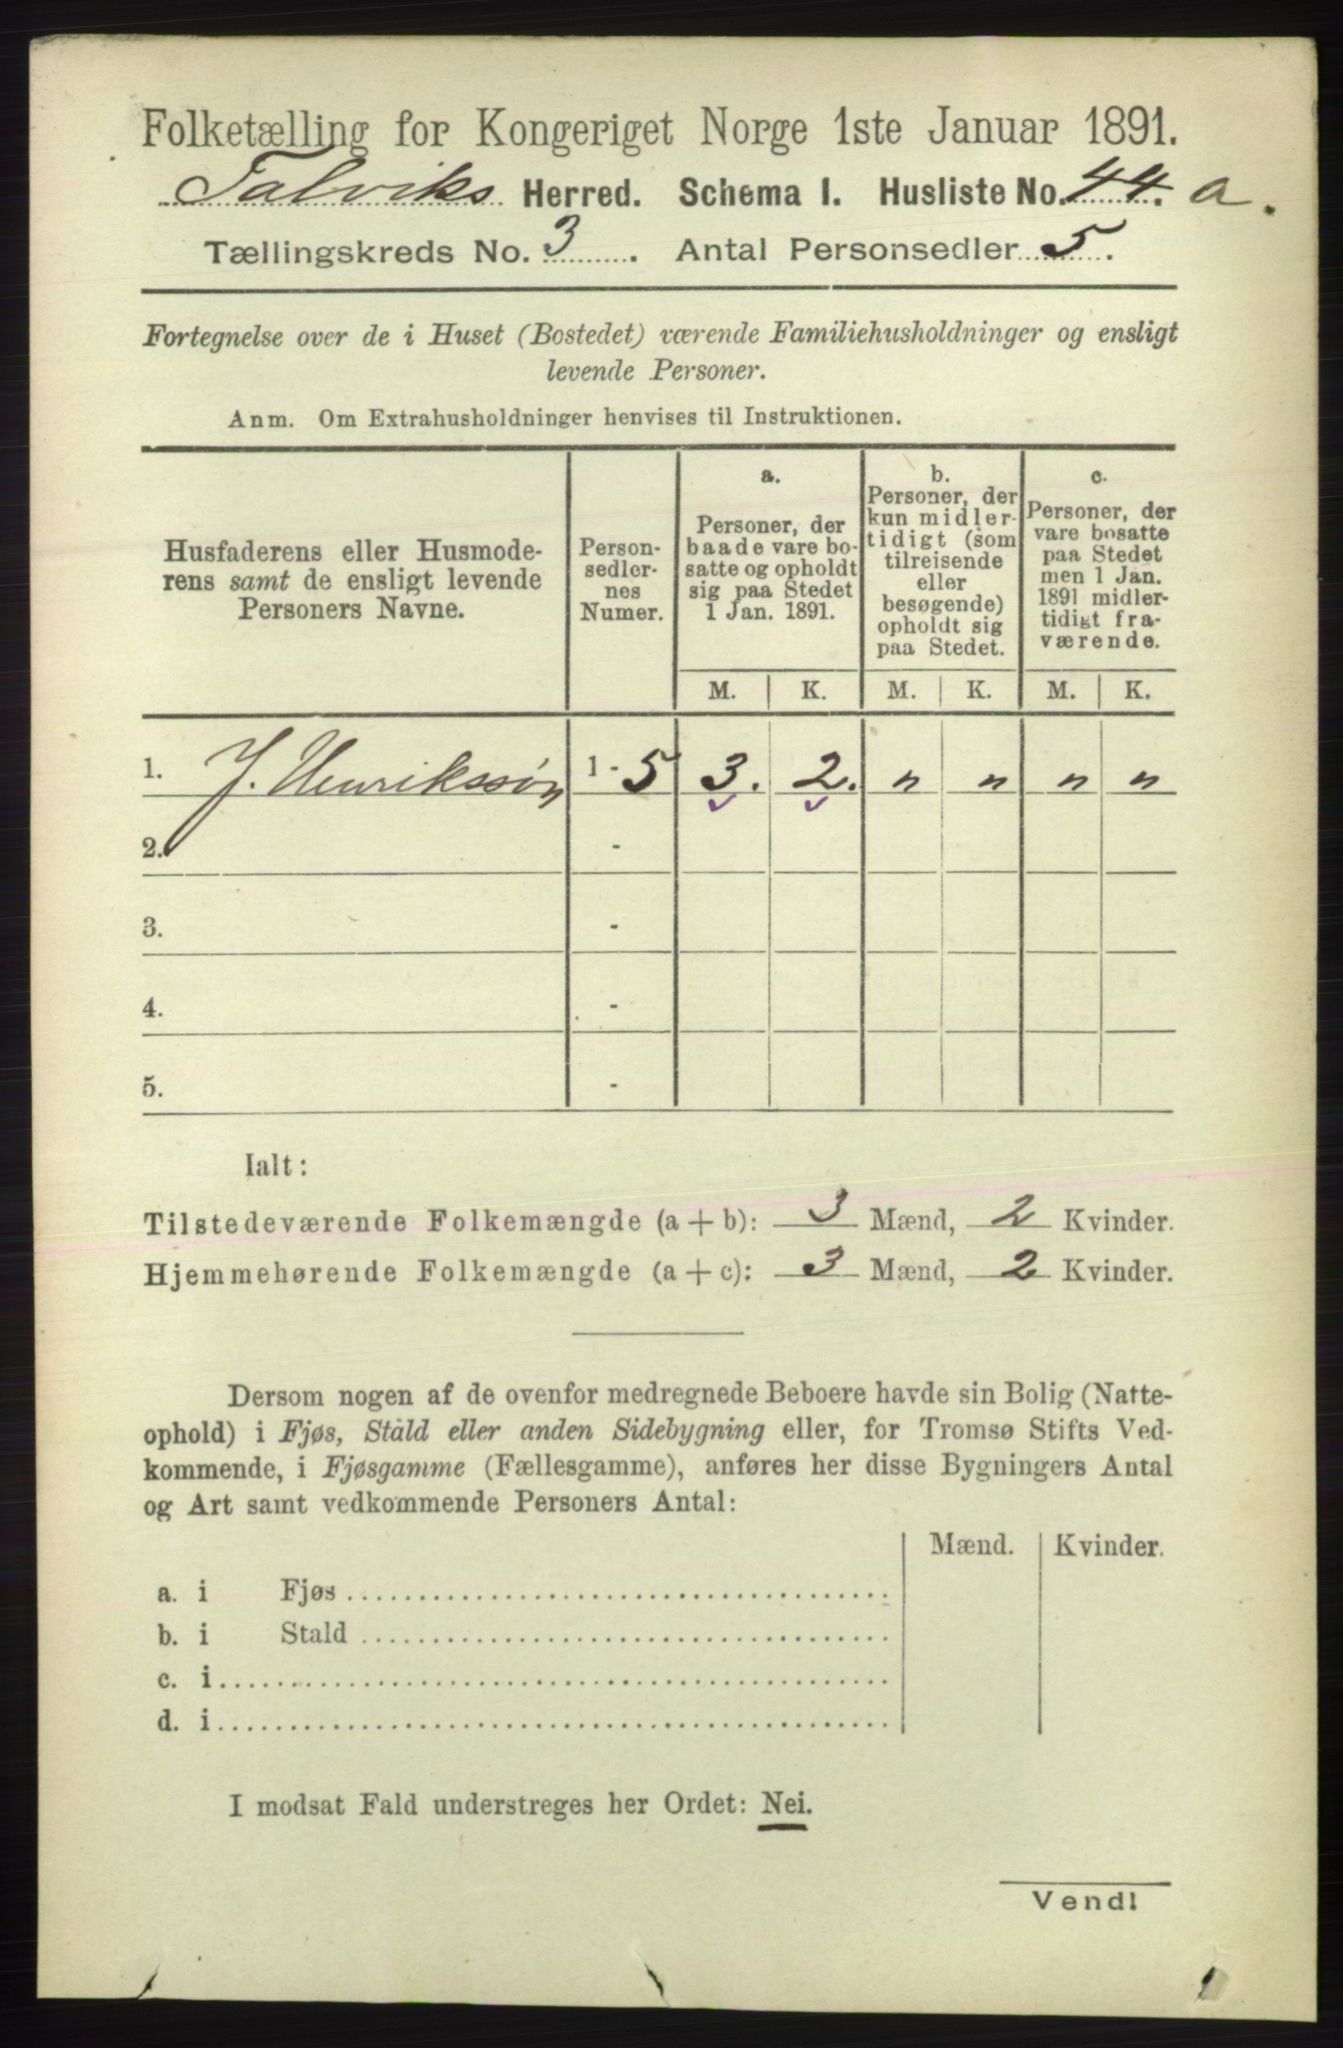 Folketælling for Kongeriget Norge 1ste Januar 1891.
Talviks Herred. Schema I. Husliste No. 44. a.
Tællingskreds No. 3. Antal Personsedler 5.
Fortegnelse over de i Huset (Bostedet) værende Familiehusholdninger og ensligt
levende Personer.
Anm. Om Extrahusholdninger henvises til Instruktionen.
Husfaderens eller Husmode-
rens samt de ensligt levende
Personers Navne.
Person-
sedler-
nes
Numer.
a.
Personer, der
baade vare bo-
satte og opholdt
sig paa Stedet
1 Jan. 1891.
b.
Personer, der
kun midler-
tidigt (som
tilreisende
eller
besøgende)
opholdt sig
paa Stedet.
c.
Personer, der
vare bosatte
paa Stedet
men 1 Jan.
1891 midler-
tidigt fra-
værende.
M. K. M. K. M. K.
1. J. Henrikssön 1 - 5 3. 2. " " " "
2. -
3. -
4. -
5. -
Ialt:
Tilstedeværende Folkemængde (a + b): 3 Mænd, 2 Kvinder.
Hjemmehørende Folkemængde (a + c): 3 Mænd, 2 Kvinder.
Dersom nogen af de ovenfor medregnede Beboere havde sin Bolig (Natte-
ophold) i Fjøs, Stald eller anden Sidebygning eller, for Tromsø Stifts Ved-
kommende, i Fjøsgamme (Fællesgamme), anføres her disse Bygningers Antal
og Art samt vedkommende Personers Antal:
Mænd. Kvinder.
a. i Fjøs
b. i Stald
c. i
d. i
I modsat Fald understreges her Ordet: Nei.
Vend!